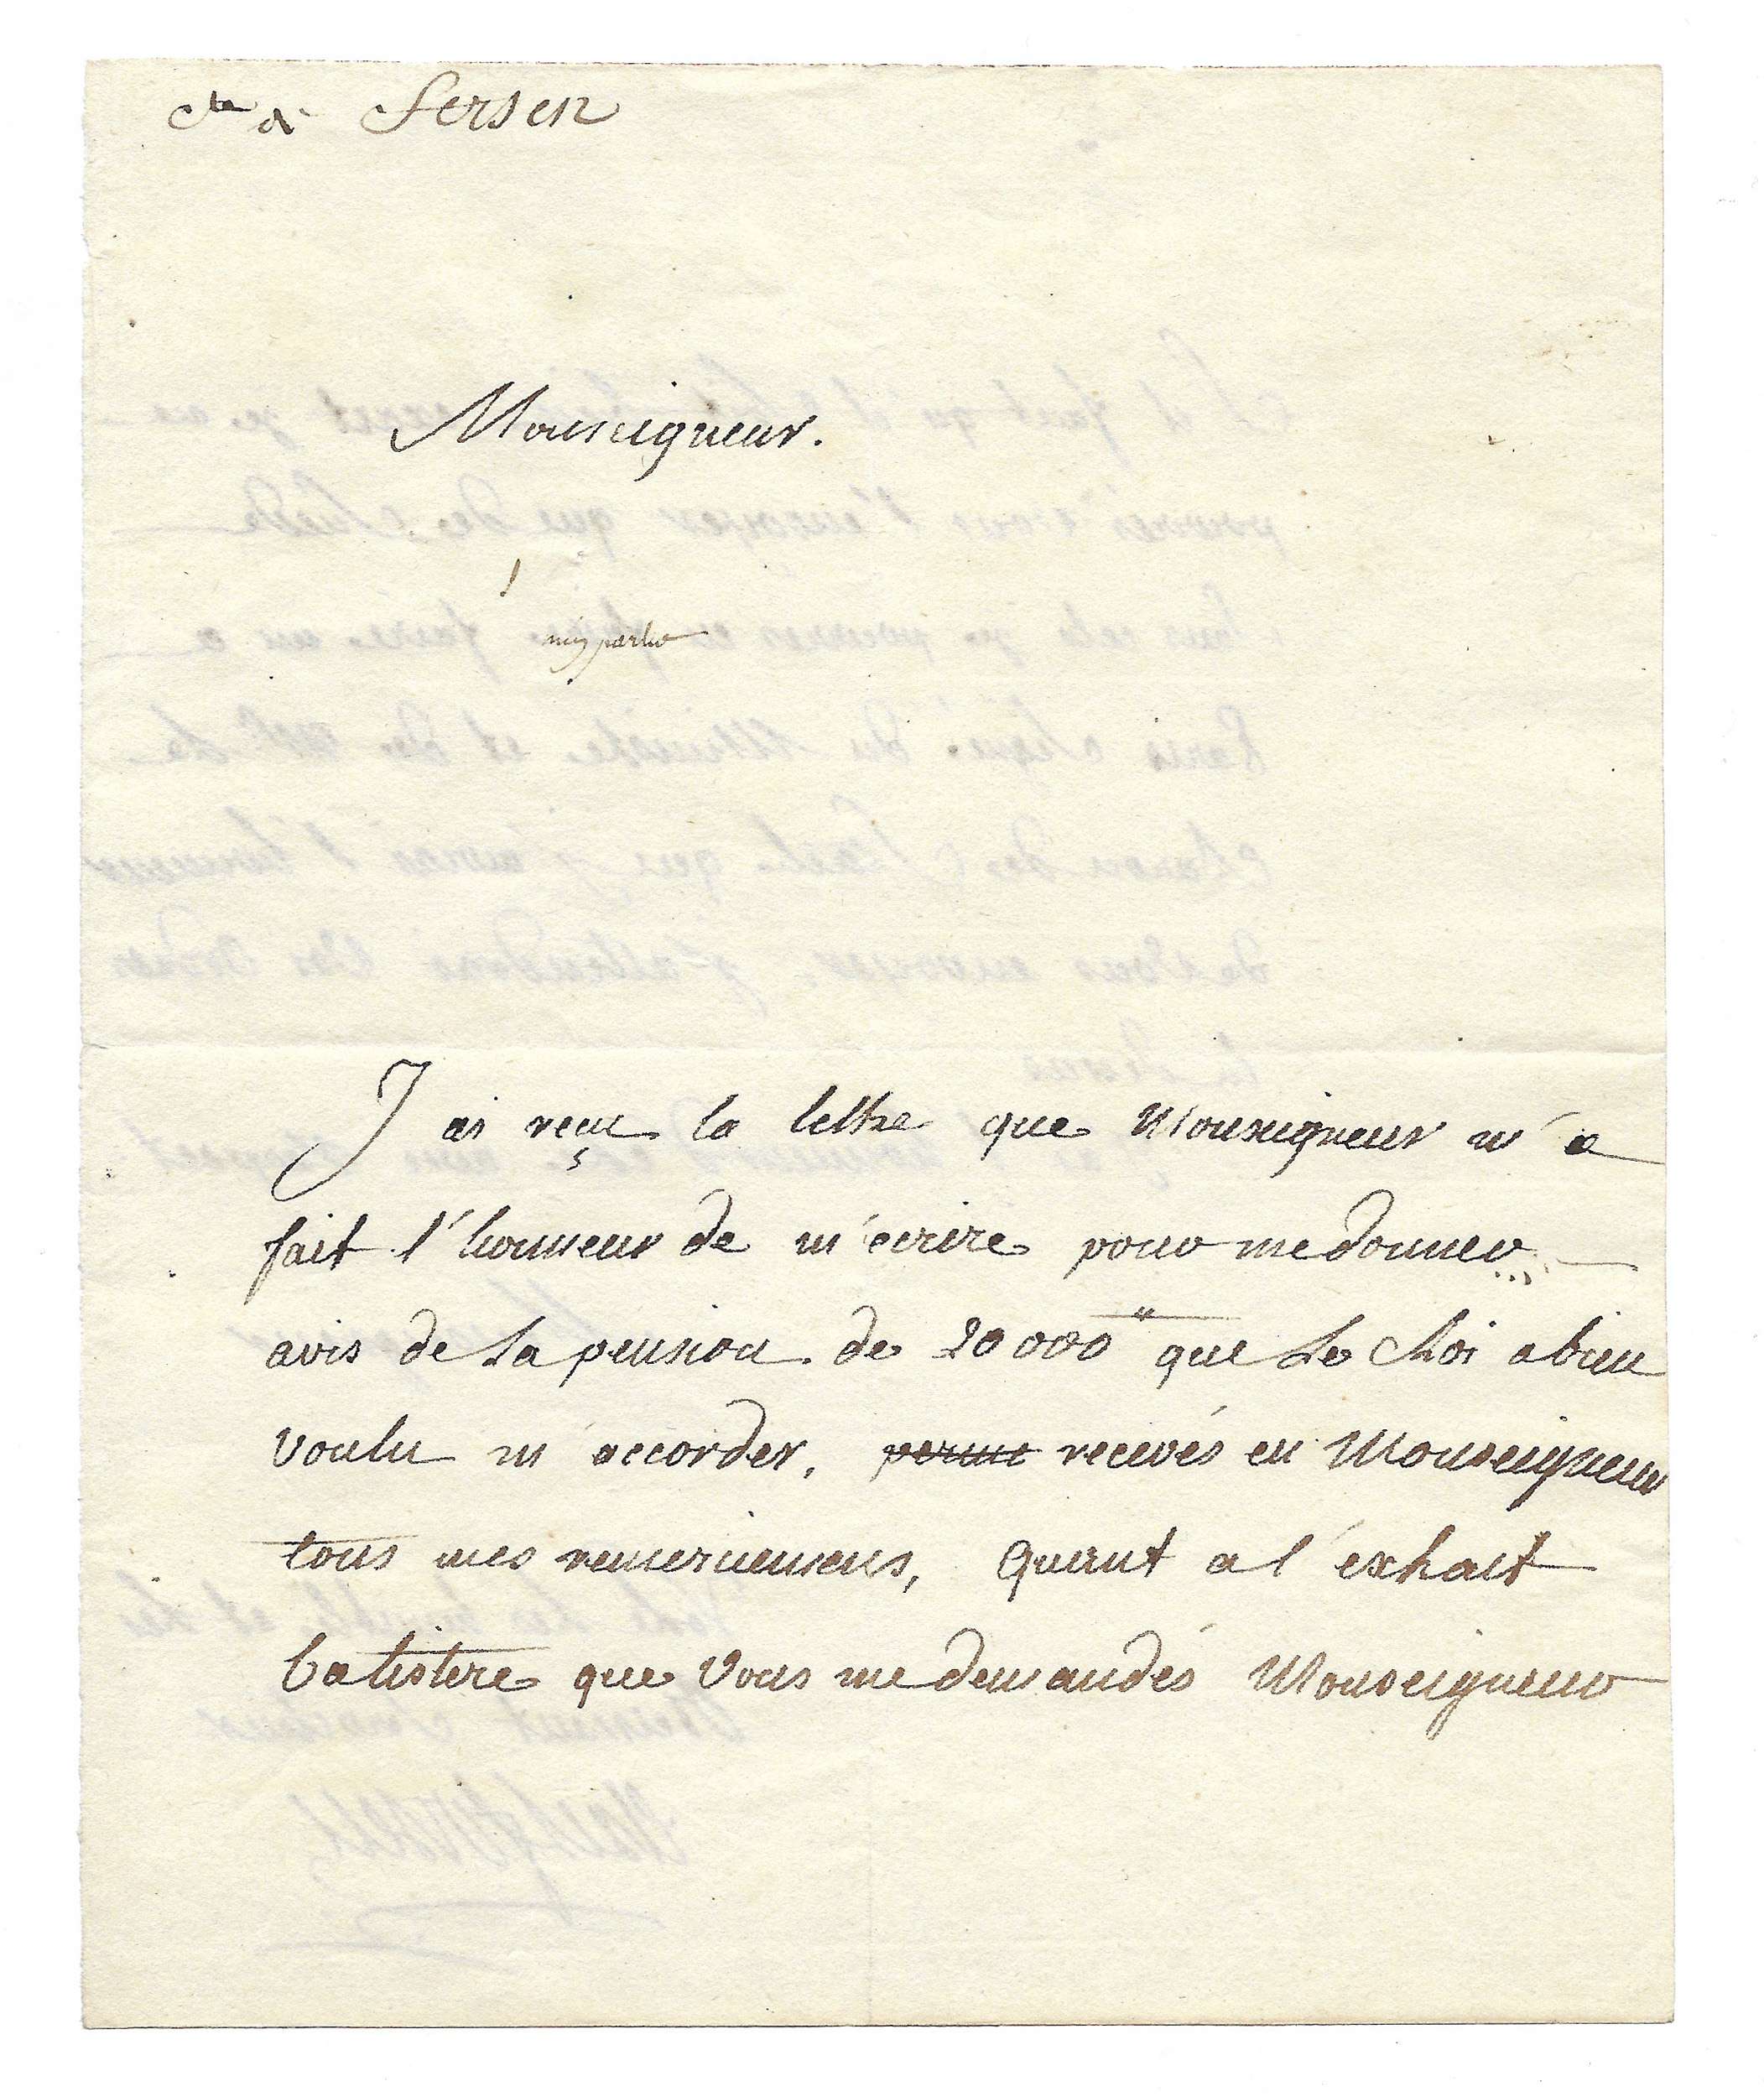 Cte de Fersen
Monseigneur.
J'ai reçu la lettre que Monseigneur m'a
fait l'honneur de m'ecrire pour me donner
avis de la pension de 20000 ᵗᵗ que Le Roi a bien
voulu m'accorder, recevés en Monseigneur
tous mes remerciemens, quant a l'extrait
batistere que vous me demandés Monseigneur